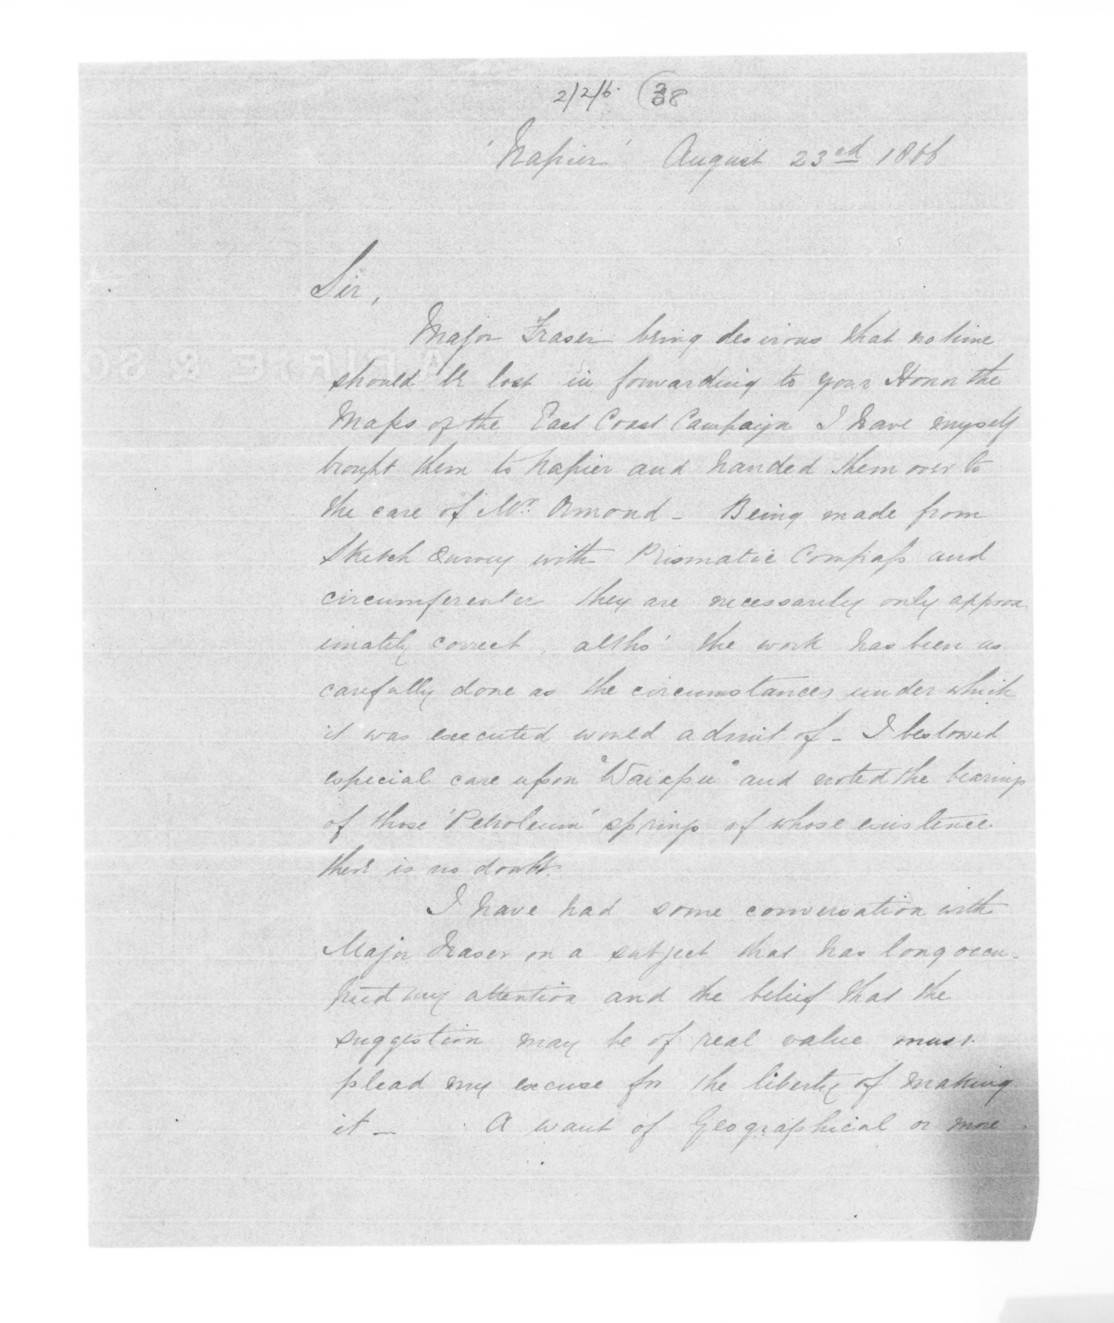 2/2/6. (38
'Napier' August 23rd 1866
Sir,
Major Fraser being desirous that no time
should be lost in forwarding to your Honor the
Maps of the East Coast Campaign I have myself
brought them to Napier and handed them over to
the care of Mr. Ormond - Being made from
Sketch Survey with Prismatic Compass and
circumferenter they are necessarily only approx
imately correct, altho' the work has been as
carefully done as the circumstances under which
it was executed would admit of - I bestowed
especial care upon "Waiapu" and noted the bearings
of those 'Petroleum' springs of whose existence
there is no doubt.
I have had some conversation with
Major Fraser on a subject that has long occu-
pied my attention and the belief that the
suggestion may be of real value must
plead my excuse for the liberty of making
it - A want of Geographical or more